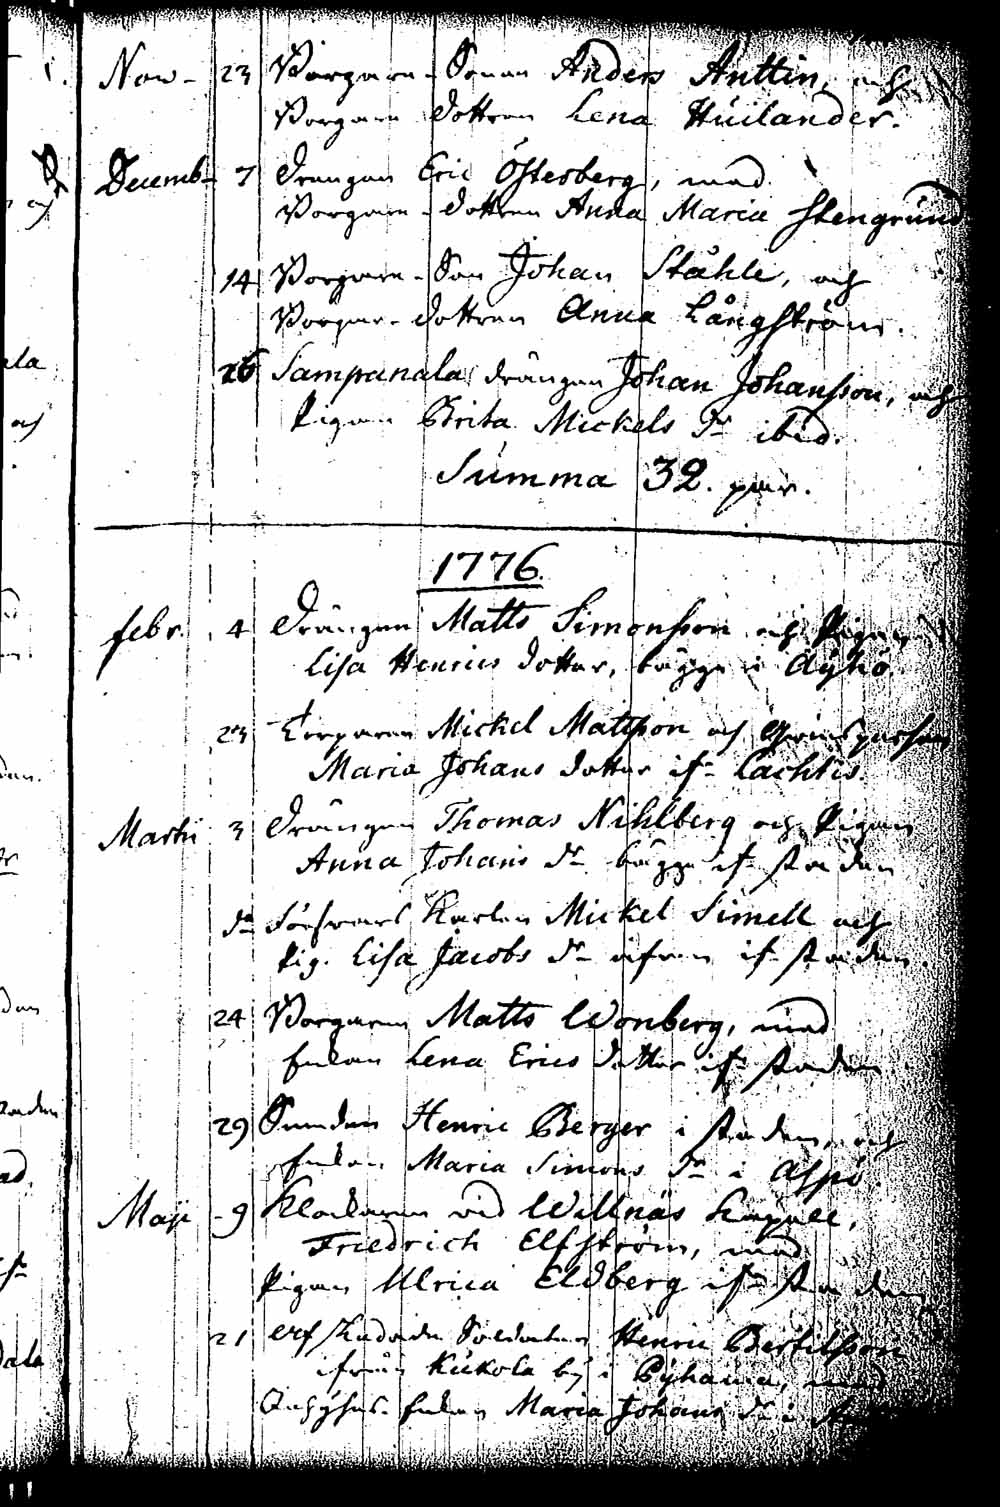 Nov. 23 Borgare-Sonen Anders Anttin, och
Borgare dottren Lena Huilander.
Decemb. 7 Drängen Eric Österberg, med
Borgare-dottren Anna Maria Stengrund
14 Borgare-Son Johan Ståhle, och
Borgare-dottren Anna Långström.
26 Sampanala drängen Johan Johansson, och
Pigan Brita Mickels dr ibid.
Summa 32. par.
1776.
Febr. 4 Drängen Matts Simonsson och Pigan
Lisa Henrics dotter, bägge i Äyhö
23 Torparen Mickel Mattsson och
Maria Johans dotter if. Lachtis.
Martii 3 Drängen Thomas Nihlberg och Pigan
Anna Johans dr bägge if. staden
do Försvars Karlen Mickel Simell och
Pig. Lisa Jacobs dr äfven if. staden.
24 Borgaren Matts Wonberg, med
Enkan Lena Erics dotter if. staden
29 Henric Berger i staden, och
Enkan Maria Simons dr i Aspö
Maji 9 Klockaren vid Willnäs Kapell,
Friedrich Elfström, med
Pigan Ulrica Eldberg if. staden
21 Afskedade Soldaten Henric Bertilsson
från Kukola by i Pyhäma, med
Inhyses-Enkan Maria Johans dr i